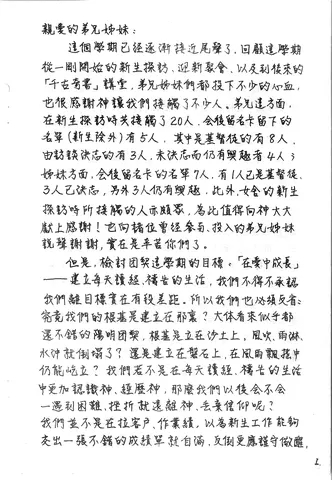 親愛的弟兄姊妹：
這個學期已經逐漸接近尾聲了，回顧這學期
從一開始的新生探訪、迎新聚會、以及到後來的
「千古奇書」講堂，弟兄姊妹們都投下不少的心血，
也很感謝神讓我們接觸了不少人。弟兄這方面，
在新生探訪時共接觸了20人，會後留名卡留下的
名單（新生除外）有5人，其中是基督徒的有8人，
由訪談決志的有3人，未決志而仍有興趣者4人；
姊妹方面，會後留名卡的名單7人，有1人已是基督徒、
3人已決志，另外3人仍有興趣，此外，女舍的新生
探訪時所接觸的人亦頗眾，為此值得向神大大
獻上感謝！也向諸位曾經參與、投入的弟兄姊妹
說聲謝謝，實在是辛苦你們了。
但是，檢討團契這學期的目標，「在愛中成長」
——建立每天讀經、禱告的生活，我們不得不承認
我們離目標實在有段差距。所以我們也必須反省：
究竟我們的根基是建立在那裏？大体看來似乎都
還不錯的陽明團契，根基是立在沙土上。風吹、雨淋、
水沖就倒塌了？還是建立在磐石上，在風雨飄搖中
仍能屹立？我們若不是在每天讀經、禱告的生活
中更加認識神、經歷神，那麼我們以後會不會
一遇到困難、挫折就遠離神、丟棄信仰呢？
我們並不是在拉客戶、作業績，以為新生工作能夠
交出一張不錯的成績單就自滿，反倒更應謹守儆醒，
1.